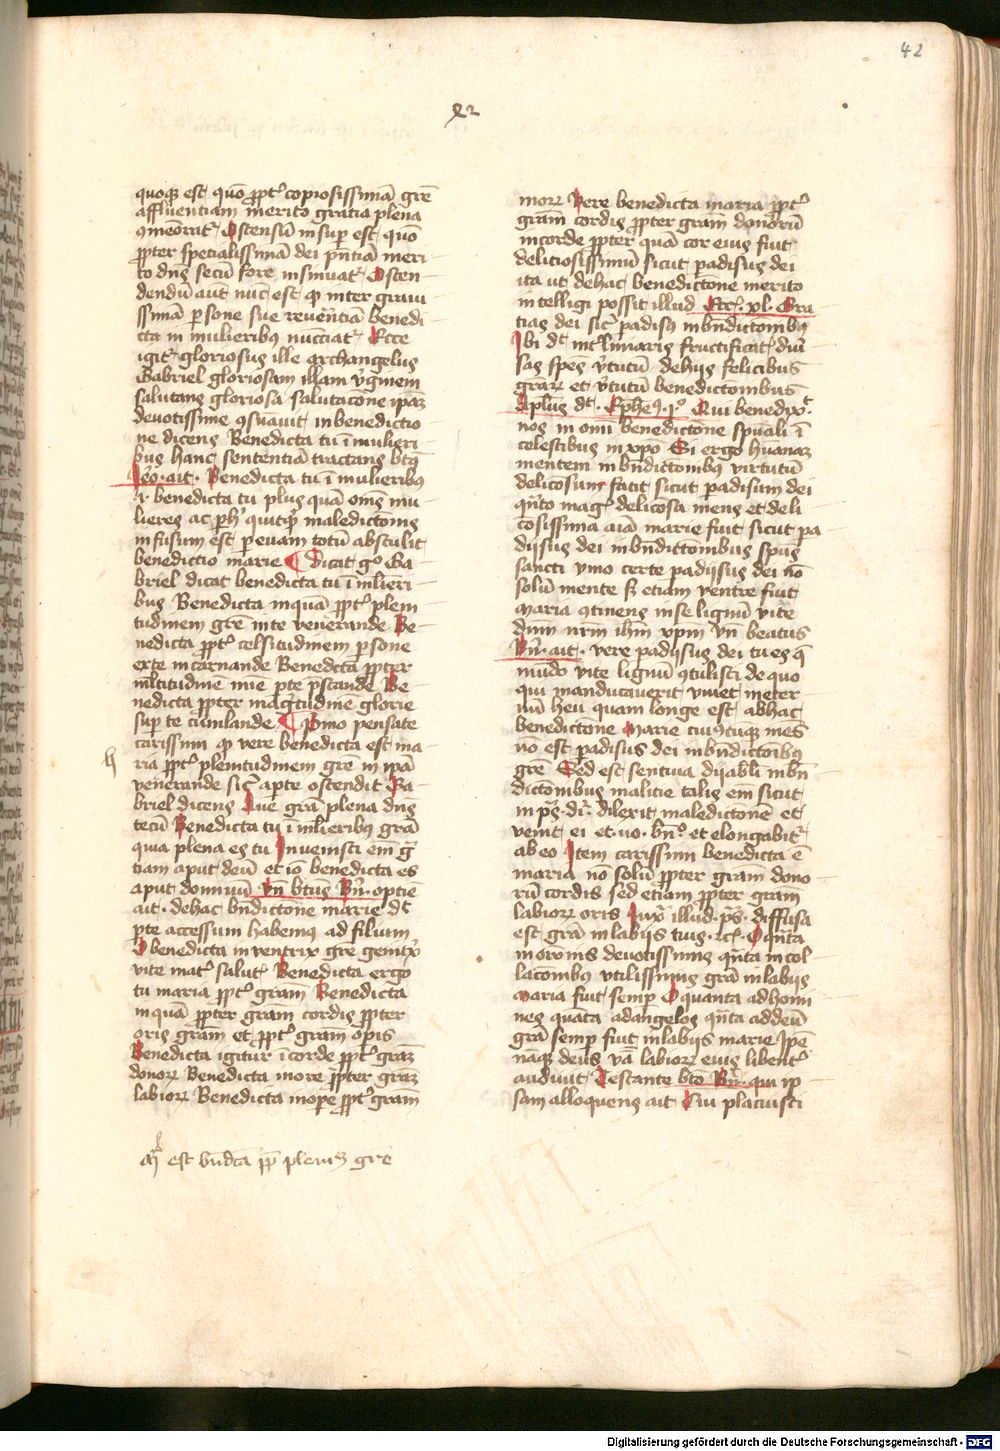 42
quoqꝫ est quō ꝓpt᷑ copiosissimā grē
affluentiam merito gratia plena
ꝯmeōrat᷑ Ostensū insuꝑ est quō
ꝓpter spetialissimā dei pn̄tiā meri
to dn̄s secū fore insinuat᷑ Osten
dendū aut nūc est ꝙ inter
ssimā ꝑsone sue reuēn̄tiā benedi
cta in mulieribus nūcciat᷑ Ecce
igit᷑ gloriosus ille archangelus
Gabriel gloriosam illam v̾ginem
salutans gloriosa salutacōne ipāꝫ
deuotissime ꝯsūauit in benedictio
ne dicens Benedicta tu ī mulieri
bus hanc sententiā tractans bt̄ꝰ
Jeō. ait. Benedicta tu ī mulieribꝰ
benedicta tu plus quā om̄s mu
lieres ac ꝑ maledictōnis
infusum est ꝑ euam totū abstulit
benedictio marie ¶ dicat gͦ Ga
briel dicat benedicta tu ī mlīeri
bus Benedicta inquā ꝓpt᷑ pleni
tudinem grē in te venerande Be
nedicta ꝓpt᷑ celsitudinem ꝑsone
ex te incarnande Benedicta ꝓpter
mltitudinē mīe ꝑ te pstande Be
nedicta ꝓpter magītudinē glorie
suꝑ te cumlande ¶ Pͥmo pensate
carissimi ꝙ vere benedicta est ma
ria ꝓpt᷑ plenitudinem grē in ipā
venerande sic᷑ apte ostendit Ga
briel dicens Aue grā plena dn̄s
tecū Benedicta tu ī mlīeribꝰ grā
quia plena es tu Inuenisti em̄ gͣ
tiam aput deū et iō benedicta es
aput dominū Vn̄ bt̄us Bn̄. optīe
ait. de hac bn̄dictōne marie d̄c
ꝑ te accessum habemꝰ ad filium
O benedicta inventrix grē genitͥx
vite mat᷑ salut᷑ Benedicta ergo
tu maria ꝓpt᷑ gram̄ Benedicta
inquā ꝓpter gram̄ cordis ꝓpter
oris gram̄ et ꝓpt᷑ gram̄ oꝑis
Benedicta igitur ī corde ꝓpt᷑ graꝫ
donoꝝ Benedicta in ore ꝓpter graꝫ
labioꝝ Benedicta in oꝑe ꝓpt᷑ gram̄
est bn̄dcā ꝓp̄ plenitꝫ grē
moꝝ Vere benedicta maria ꝓpt᷑
gram̄ cordis ꝓpter gram̄ donorū
in corde ꝓpter quā cor eius fuit
delitiosissimū sicut ꝑadisus dei
ita ut de hac benedictōne merito
intelligi possit illud Ecc᷑. xl. Gra
tias dei sic᷑ ꝑadisꝰ in bn̄dictōnibꝰ
fructificat᷑ diūͥ
sas spēs v̾tutū de hijs felicibus
graꝝ et v̾tutū benedictōnibus
Aplūs d̄c. Ephē. jͦ Qui benedixͭ
nos in om̄i benedictōne spūali ī
celestibus in xpō Si ergo hūanaꝫ
mentem in bn̄dictōnibꝰ virtutū
delicosam facit sicut ꝑadisum dei
qn̄to magͥ delicosa mens et deli
cosissima aīa marie fuit sicut pa
dijsus dei in bn̄dictōnibus spūs
sancti ymo certe padijsus dei nō
solū mente sꝫ etiam ventre fiut
Maria ꝯtinens in se lignū vite
dnm̄ nrm̄ ihm̄ xpm̄ vn̄ beatus
Bn̄. ait. vere padijsus dei tu es q̄
mūdo vite lignū ꝯtulisti de quo
qui manducauerit viuet in eter
nū heu quam longe est ab hac
benedictōne Marie cuiꝰcūqꝫ mēs
nō est ꝑadisus dei in bn̄dictōibꝰ
grē Sed est sentina dijabli in bn̄
dictōnibus malitie talis em̄ sicut
in ps̄. dr̄. dilexit maledictōnē et
veniet ei et nō. bn̄ͦ et elongabit᷑
ab eo Item carissimi benedicta ē
maria nō solū ꝓpter gram̄ dono
rū cordis sed etiam ꝓpter gram̄
labioꝝ oris Juxͣ illud. ps̄. diffusa
est grā in labijs tuis. ⁊c̄. O qn̄ta
in oro͞nis deuotissimis qn̄ta in col
lacōnibꝰ vtilissimis grā in labijs
Maria fuit semꝑ O quanta ad homi
nes quāta ad angelos qn̄ta ad deū
grā semꝑ fuit in labijs marie Ipē
nāqꝫ deus v̄a labioꝝ eiꝰ libent᷑
audiuit Testante bt̄o Bn̄. qui ip
sam alloquens ait Cui placuisti
Digitalisierung gefördert durch die Deutsche Forschungsgemeinschaft - DFG